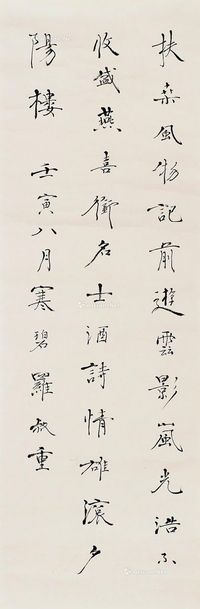 扶桑風物記前遊雲影嵐光浩不
收盛燕喜衔名士酒詩情雄滾夕
陽樓 壬寅八月寒碧羅叔重